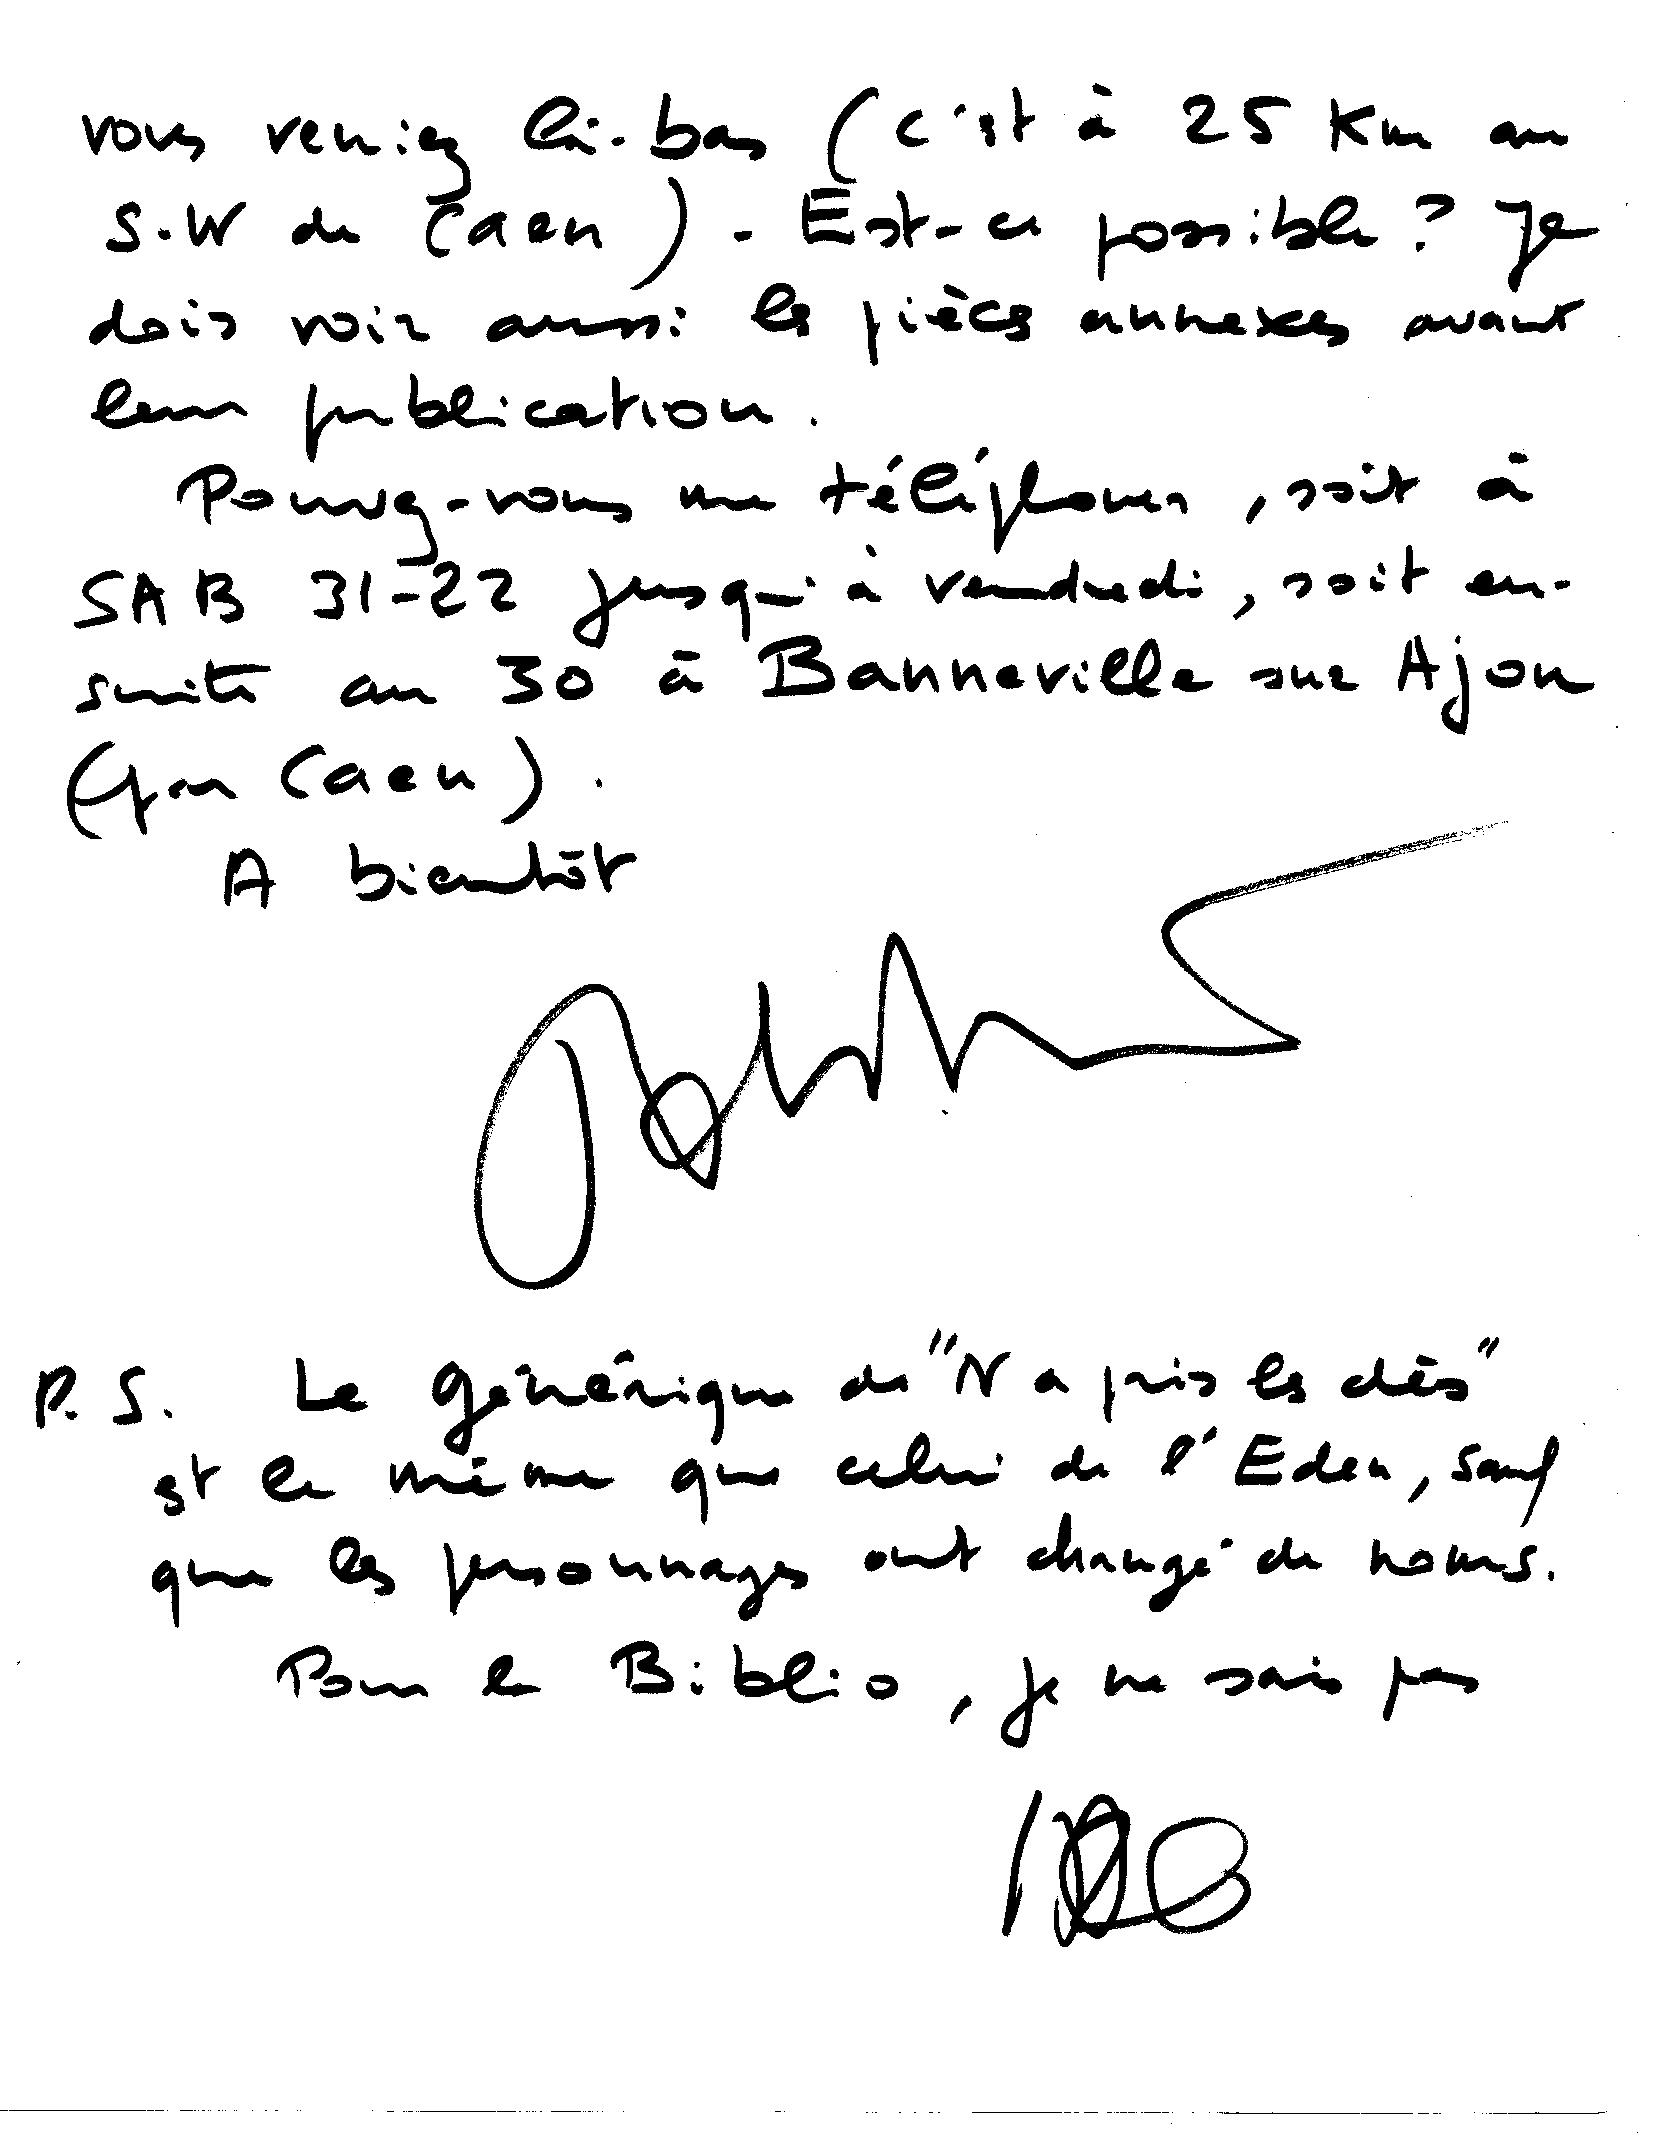 vous veniez là-bas (c'est à 25 Km au
S.W de Caen). Est-ce possible? Je
dois voir aussi les pièces annexes avant
leur publication.
Pouvez-vous me téléphoner, soit à
SAB 31-22 jusqu'à vendredi, soit en-
suite au 30 à Banneville sur Ajon
(par Caen).
A bientôt
P.S. Le générique de "N a pris les dés"
est le même que celui de l'Eden, sauf
que les personnages ont changé de noms.
Pour la Biblio, je ne sais pas